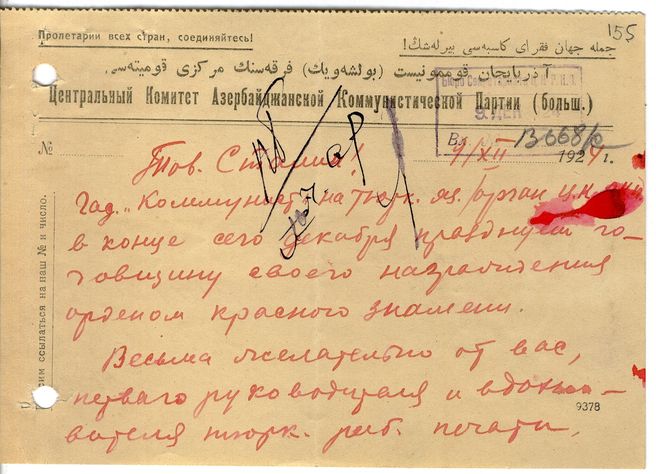 155
Пролетарии всех стран, соединяйтесь!
جمله جهان فقرای کاسبه‌سی بیرله‌شڭ!
آذربایجان قوممونیست (بولشه‌ویك) فرقه‌سنك مرکزی قومیته‌سی
Центральный Комитет Азербайджанской Коммунистической Партии (больш.)
9 ДЕК
Вх. В668/с
№ 4/XII 1924 г.
Тов. Сталин!
Газ. „Коммунист" на тюрк. яз. /орган Ц.К.
в конце сего декабря празднует го-
товщину своего награждения
орденом красного знамени.
Весьма желательно от вас,
перваго руководителя и вдохно-
вателя тюрк. раб. печати,
9378
сим ссылаться на наш № и число.